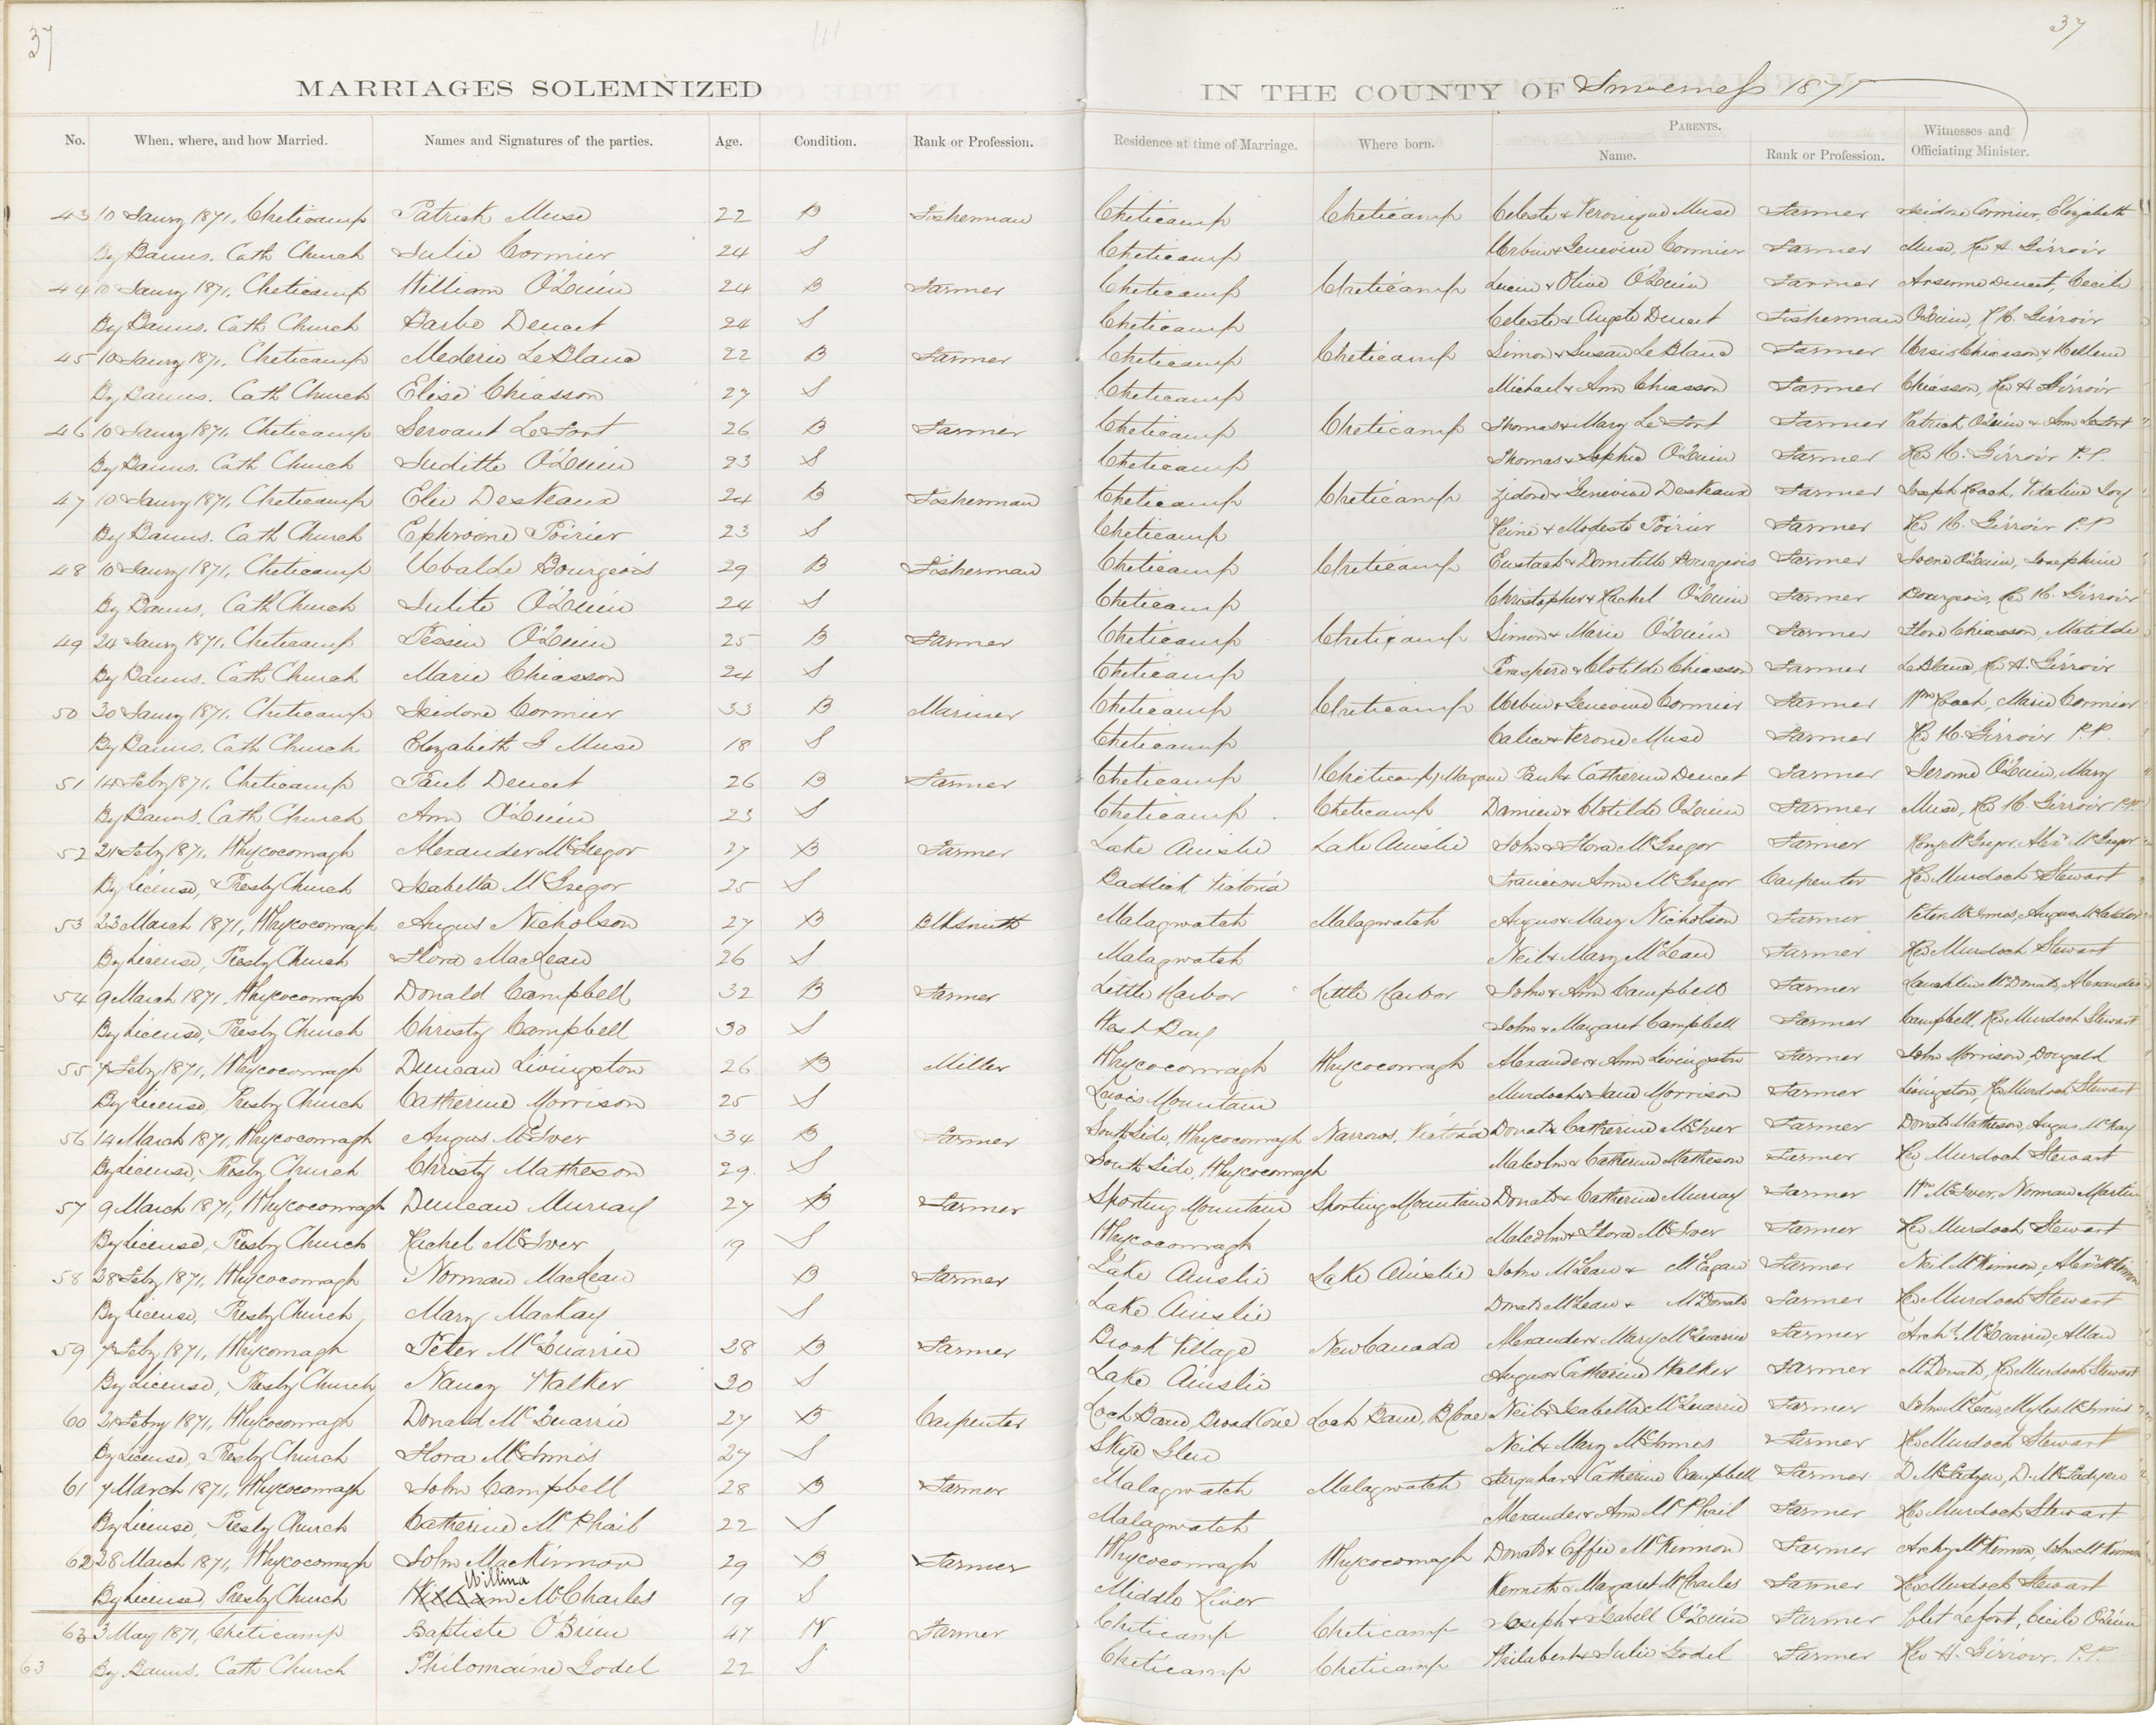 37
37
MARRIAGES SOLEMNIZED IN THE COUNTY OF Inverness 1871
No. When, where, and how Married. Names and Signatures of the parties. Age. Condition. Rank or Profession. Residence at time of Marriage. Where born. PARENTS. Name. Rank or Profession. Witnesses and Officiating Minister.
43 10 Jany 1871, Cheticamp Patrick Muse 22 B Fisherman Cheticamp Cheticamp Celeste & Veronique Muse Farmer Isidore Cormier, Elizabeth
By Banns. Cath Church Julie Cormier 24 S Cheticamp Urbin & Genevieve Cormier Farmer Muse, Rev H. Girroir
44 10 Jany 1871, Cheticamp William O'Quin 24 B Farmer Cheticamp Cheticamp Lucin & Olive O'Quin Farmer Anserme Doucet, Cecile
By Banns. Cath Church Barbe Doucet 24 S Cheticamp Celeste & Doucet Fisherman O'Quin, R H. Girroir
45 10 Jany 1871, Cheticamp Mederic LeBlanc 22 B Farmer Cheticamp Cheticamp Simon & Susan LeBlanc Farmer Chiasson & Hellen
By Banns. Cath Church Elise Chiasson 27 S Cheticamp Michael & Ann Chiasson Farmer Chiasson, Rev H Girroir
46 10 Jany 1871, Cheticamp Servant LeFort 26 B Farmer Cheticamp Cheticamp Thomas & Mary LeFort Farmer Patrick O'Quin & Ann LeFort
By Banns. Cath Church Juditte O'Quin 23 S Cheticamp Thomas & Sophie O'Quin Farmer Rev H. Girroir P.P.
47 10 Jany 1871, Cheticamp Elie DesVeaux 24 B Fisherman Cheticamp Cheticamp Zidore & Genevieve DesVeaux Farmer Joseph Roach, Vitaline
By Banns. Cath Church Ephrosine Poirier 23 S Cheticamp & Modeste Poirier Farmer Rev H. Girroir P.P
48 10 Jany 1871, Cheticamp Ubalde Bourgeois 29 B Fisherman Cheticamp Cheticamp Eustach & Domitille Bourgeois Farmer O'Quin, Josephine
By Banns, Cath Church Julite O'Quin 24 S Cheticamp Christopher & Rachel O'Quin Farmer Bourgeois, Rev H. Girroir
49 24 Jany 1871, Cheticamp O'Quin 25 B Farmer Cheticamp Cheticamp Simon & Marie O'Quin Farmer Chiasson, Matilde
By Banns. Cath Church Marie Chiasson 24 S Cheticamp Prospere & Clotilde Chiasson Farmer LeBlanc, Rev H. Girroir
50 30 Jany 1871, Cheticamp Isidore Cormier 33 B Mariner Cheticamp Cheticamp Urbin & Genevieve Cormier Farmer Wm Roach, Marie Cormier
By Banns. Cath Church Elizabeth J Muse 18 S Cheticamp & Verone Muse Farmer Rev H. Girroir P.P.
51 14 Feby 1871, Cheticamp Paul Doucet 26 B Farmer Cheticamp Cheticamp, Magare Paul & Catherine Doucet Farmer Jerome O'Quin, Mary
By Banns. Cath Church Ann O'Quin 23 S Cheticamp Cheticamp Damien & Clotilde O'Quin Farmer Muse, Rev H. Girroir P.P.
52 21 Feby 1871, Whycocomagh Alexander McGregor 27 B Farmer Lake Ainslie Lake Ainslie John & Flora McGregor Farmer McGregor, Alexr McGregor
By License, Presby Church Isabella McGregor 25 S Baddick Victoria Francis & Ann McGregor Carpenter Rev Murdoch Stewart
53 23 March 1871, Whycocomagh Angus Nicholson 27 B Blksmith Malagwatch Malagwatch Angus & Mary Nicholson Farmer Peter McInnes, Angus
By License, Presby Church Flora MacLean 26 S Malagwatch Neil & Mary McLean Farmer Rev Murdoch Stewart
54 9 March 1871, Whycocomagh Donald Campbell 32 B Farmer Little Harbor Little Harbor John & Ann Campbell Farmer Lauchlin McDonald, Alexander
By License, Presby Church Christy Campbell 30 S West Bay John & Margaret Campbell Farmer Campbell, Rev Murdoch Stewart
55 7 Feby 1871, Whycocomagh Duncan Livingston 26 B Miller Whycocomagh Whycocomagh Alexander & Ann Livingston Farmer John Morrison, Dougald
By License, Presby Church Catherine Morrison 25 S Lewis Mountain Murdoch & Jane Morrison Farmer Livingston, Rev Murdoch Stewart
56 14 March 1871, Whycocomagh Angus McIver 34 B Farmer South Side, Whycocomagh Narrows, Victoria Donald & Catherine McIver Farmer Donald Matheson, Angus McKay
By License, Presby Church Christy Matheson 29 S South Side, Whycocomagh Malcolm & Catherine Matheson Farmer Rev Murdoch Stewart
57 9 March 1871, Whycocomagh Duncan Murray 27 B Farmer Sporting Mountain Sporting Mountain Donald & Catherine Murray Farmer Wm McIver, Norman Martin
By License, Presby Church Rachel McIver 19 S Whycocomagh Malcolm & Flora McIver Farmer Rev Murdoch Stewart
58 28 Feby 1871, Whycocomagh Norman MacLean B Farmer Lake Ainslie Lake Ainslie John McLean & McEagan Farmer Neil McKinnon, Alexr McKinnon
By License, Presby Church, Mary MacKay S Lake Ainslie Donald McLean & McDonald Farmer Rev Murdoch Stewart
59 7 Feby 1871, Whycomagh Peter McQuarrie 28 B Farmer Brook Village New Canada Alexander & Mary McQuarrie Farmer Archd McQuarrie, Allan
By License, Presby Church Nancy Walker 30 S Lake Ainslie Angus & Catherine Walker Farmer McDonald, Rev Murdoch Stewart
60 21 Febry 1871, Whycocomagh Donald McQuarrie 27 B Carpenter Loch Bann, Broad Cove Loch Bann, B Cove Neil & Isabella McQuarrie Farmer John McLean, Myles McInnis
By License, Presby Church Flora McInnis 27 S Skye Glen Neil & Mary McInnes Farmer Rev Murdoch Stewart
61 7 March 1871, Whycocomagh John Campbell 28 B Farmer Malagwatch Malagwatch Farquhar & Catherine Campbell Farmer D McFadyen, D. McFadyen
By License, Presby Church Catherine McPhail 22 S Malagwatch Alexander & Ann McPhail Farmer Rev Murdoch Stewart
62 28 March 1871, Whycocomagh John MacKinnon 29 B Farmer Whycocomagh Whycocomagh Donald & Effie McKinnon Farmer Archy McKinnon, John McKinnon
Willina
By License, Presby Church William McCharles 19 S Middle River Kenneth & Margaret McCharles Farmer Rev Murdoch Stewart
63 3 May 1871, Cheticamp Baptiste O'Brien 47 W Farmer Cheticamp Cheticamp Joseph & Isabell O'Quin Farmer Clet Lefort, Cecile O'Quin
63 By Banns. Cath Church Philomaine Godel 22 S Cheticamp Cheticamp & Julie Godel Farmer Rev H. Girroir, P.P.